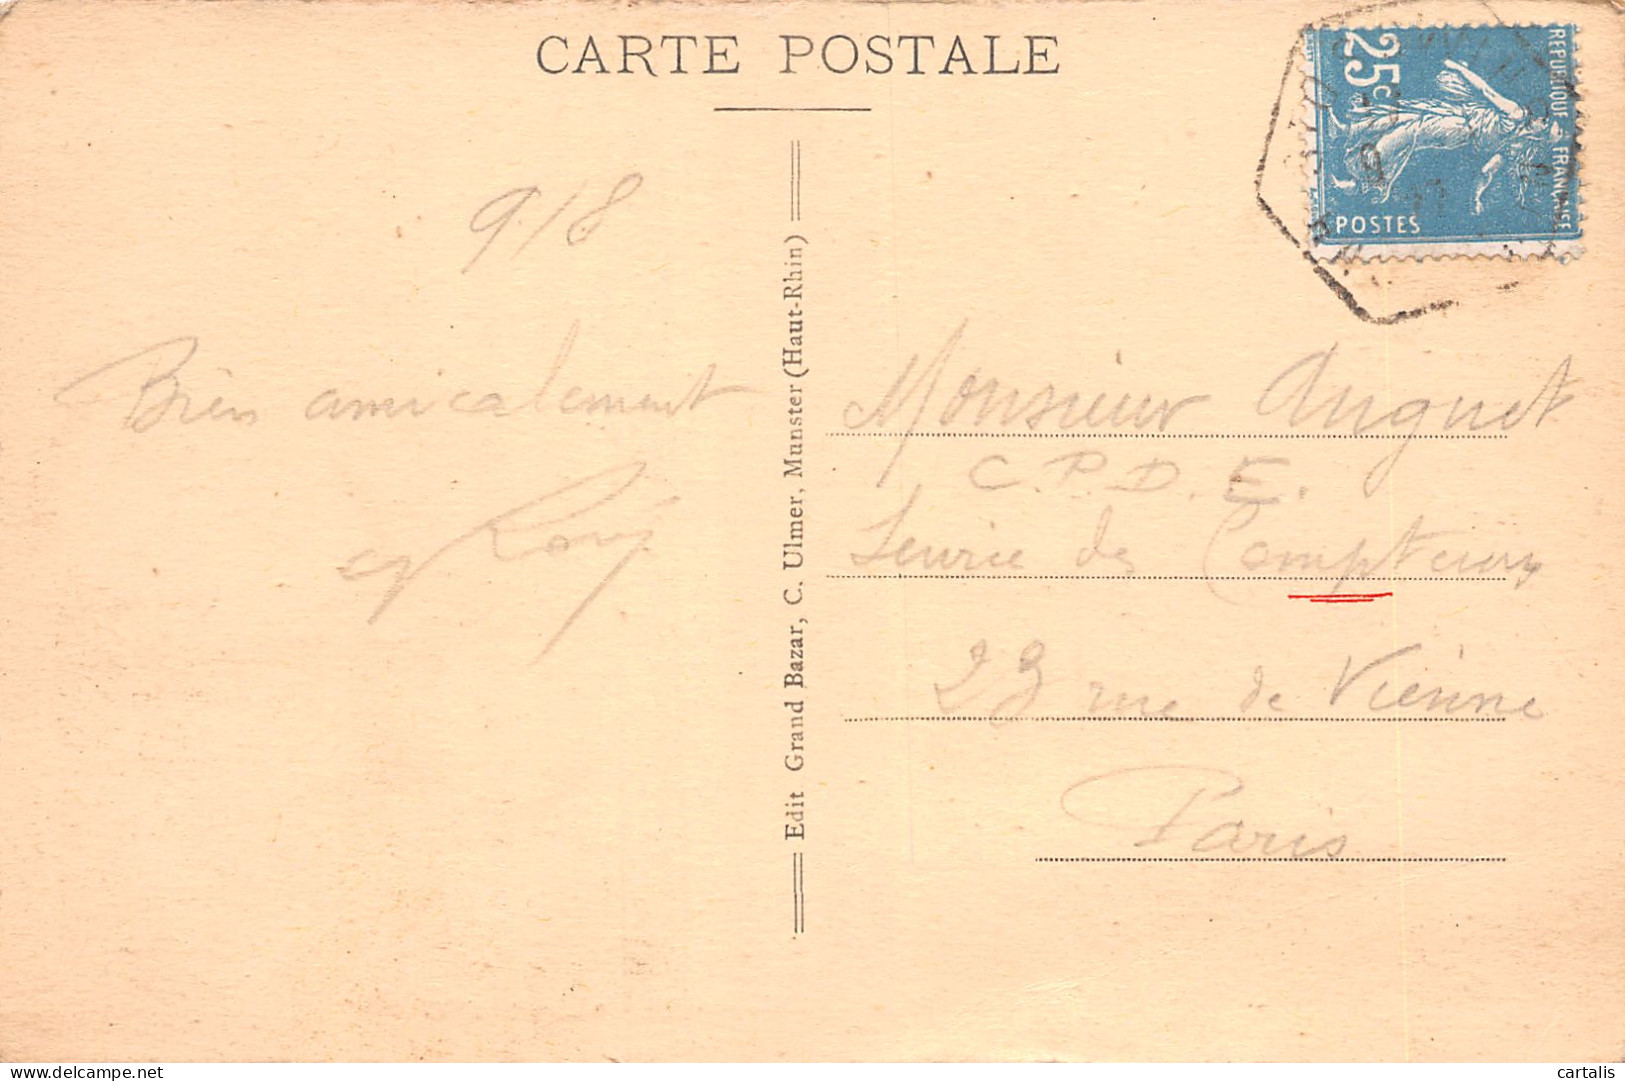 CARTE POSTALE
25c
REPUBLIQUE FRANÇAISE
POSTES
9/8
Bien amicalement
Edit Grand Bazar, C. Ulmer, Munster (Haut-Rhin)
Monsieur Auguet
C.P.D.E.
Service des Compteurs
23 rue de Vienne
Paris
delcampe.net
cartalis